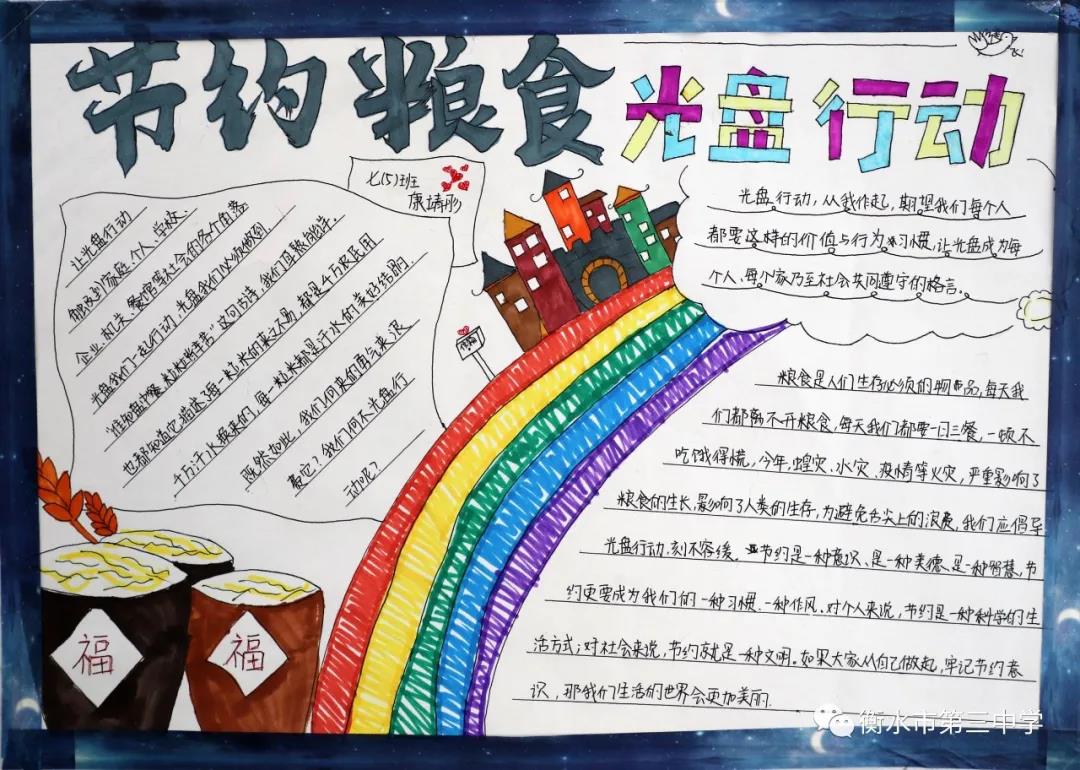 节约粮食 光盘行动
七(5)班
康靖彤
让光盘行动
能改到家庭、个人、学校、
企业、机关、餐馆等社会的各个角落
光盘我们一起行动,光盘我们必须做到。
"谁知盘中餐,粒粒皆辛苦"这句古诗,我们耳熟能详
也都知道它描述了每一粒米的来之不易,都是农民用
千万汗水换来的,每一粒米都是汗水的美好结晶。
既然如此,我们何来的勇气来浪
费它?我们何不光盘行
动呢?
光盘行动,从我作起,期望我们每个人
都要这样的价值与行为习惯,让光盘成为每
个人、每个家乃至社会共同遵守的格言。
粮食是人们生存必须的物品,每天我
们都离不开粮食,每天我们都要一日三餐,一顿不
吃饿得慌,今年,蝗灾、水灾、疫情等火灾,严重影响了
粮食的生长,影响了人类的生存,为避免舌尖上的浪费,我们应倡导
光盘行动,刻不容缓。节约是一种意识、是一种美德、是一种智慧,节
约更要成为我们的一种习惯、一种作风。对个人来说,节约是一种科学的生
活方式;对社会来说,节约就是一种文明。如果大家从自己做起,牢记节约意
识,那我们生活的世界会更加美丽
福
福
衡水市第三中学